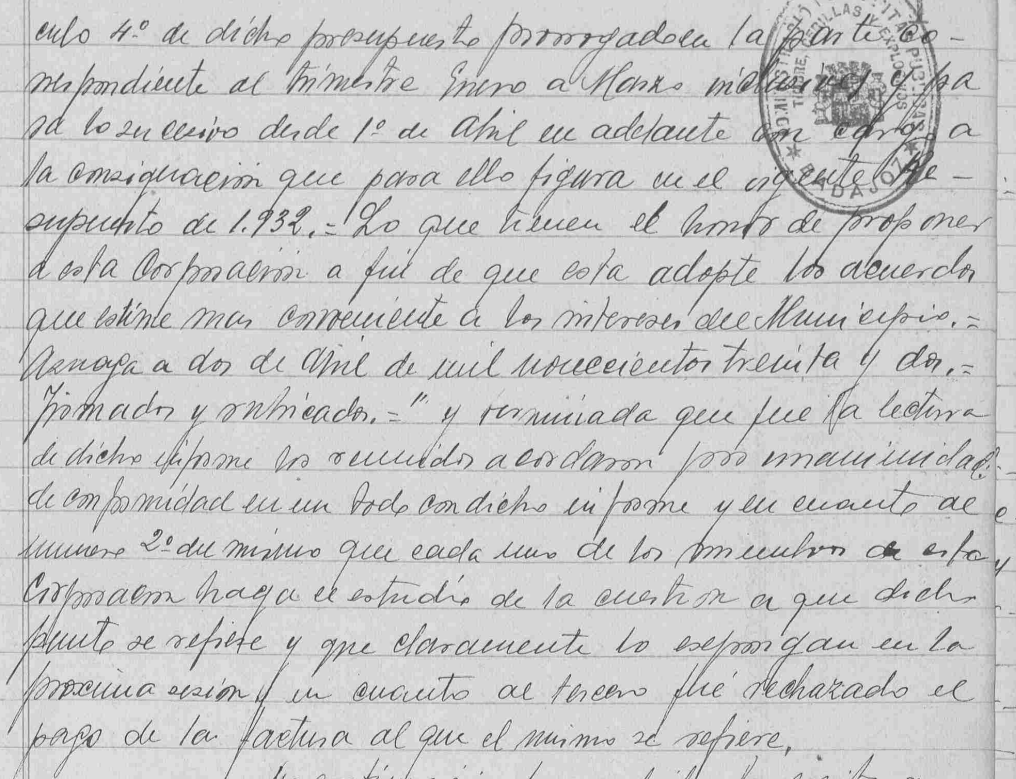 culo 4º de dicho presupuesto prorrogado en la parte co-
rrespondiente al trimestre Enero a Marzo inclusives y pa
ra lo sucesivo desde 1º de Abril en adelante con cargo a
la consignación que para ello figura en el vigente Pre-
supuesto de 1.932.= Lo que tienen el honor de proponer
a esta Corporación a fin de que esta adopte los acuerdos
que estime mas conveniente a los intereses del Municipio.=
Azuaga a dos de Abril de mil novecientos treinta y dos.=
Firmados y rubricados.=" y terminada que fue la lectura
de dicho informe los reunidos acordaron por unanimidad:
de conformidad en un todo con dicho informe y en cuanto al
numero 2º del mismo que cada uno de los miembros de esta
Corporacion haga el estudio de la cuestion a que dicho
punto se refiere y que claramente lo expongan en la
proxima sesión y en cuanto al tercero fué rechazado el
pago de la factura al que el mismo se refiere.
TIMBRE, CERILLAS Y EXPLOSIVOS
BADAJOZ